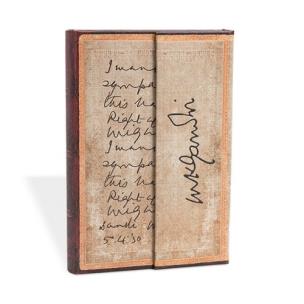 I wan
sympa
this ba
Right a
Migh
I wan
sympa
this ba
Right of
Migh
Dandi
5.4.30
MKGandhi